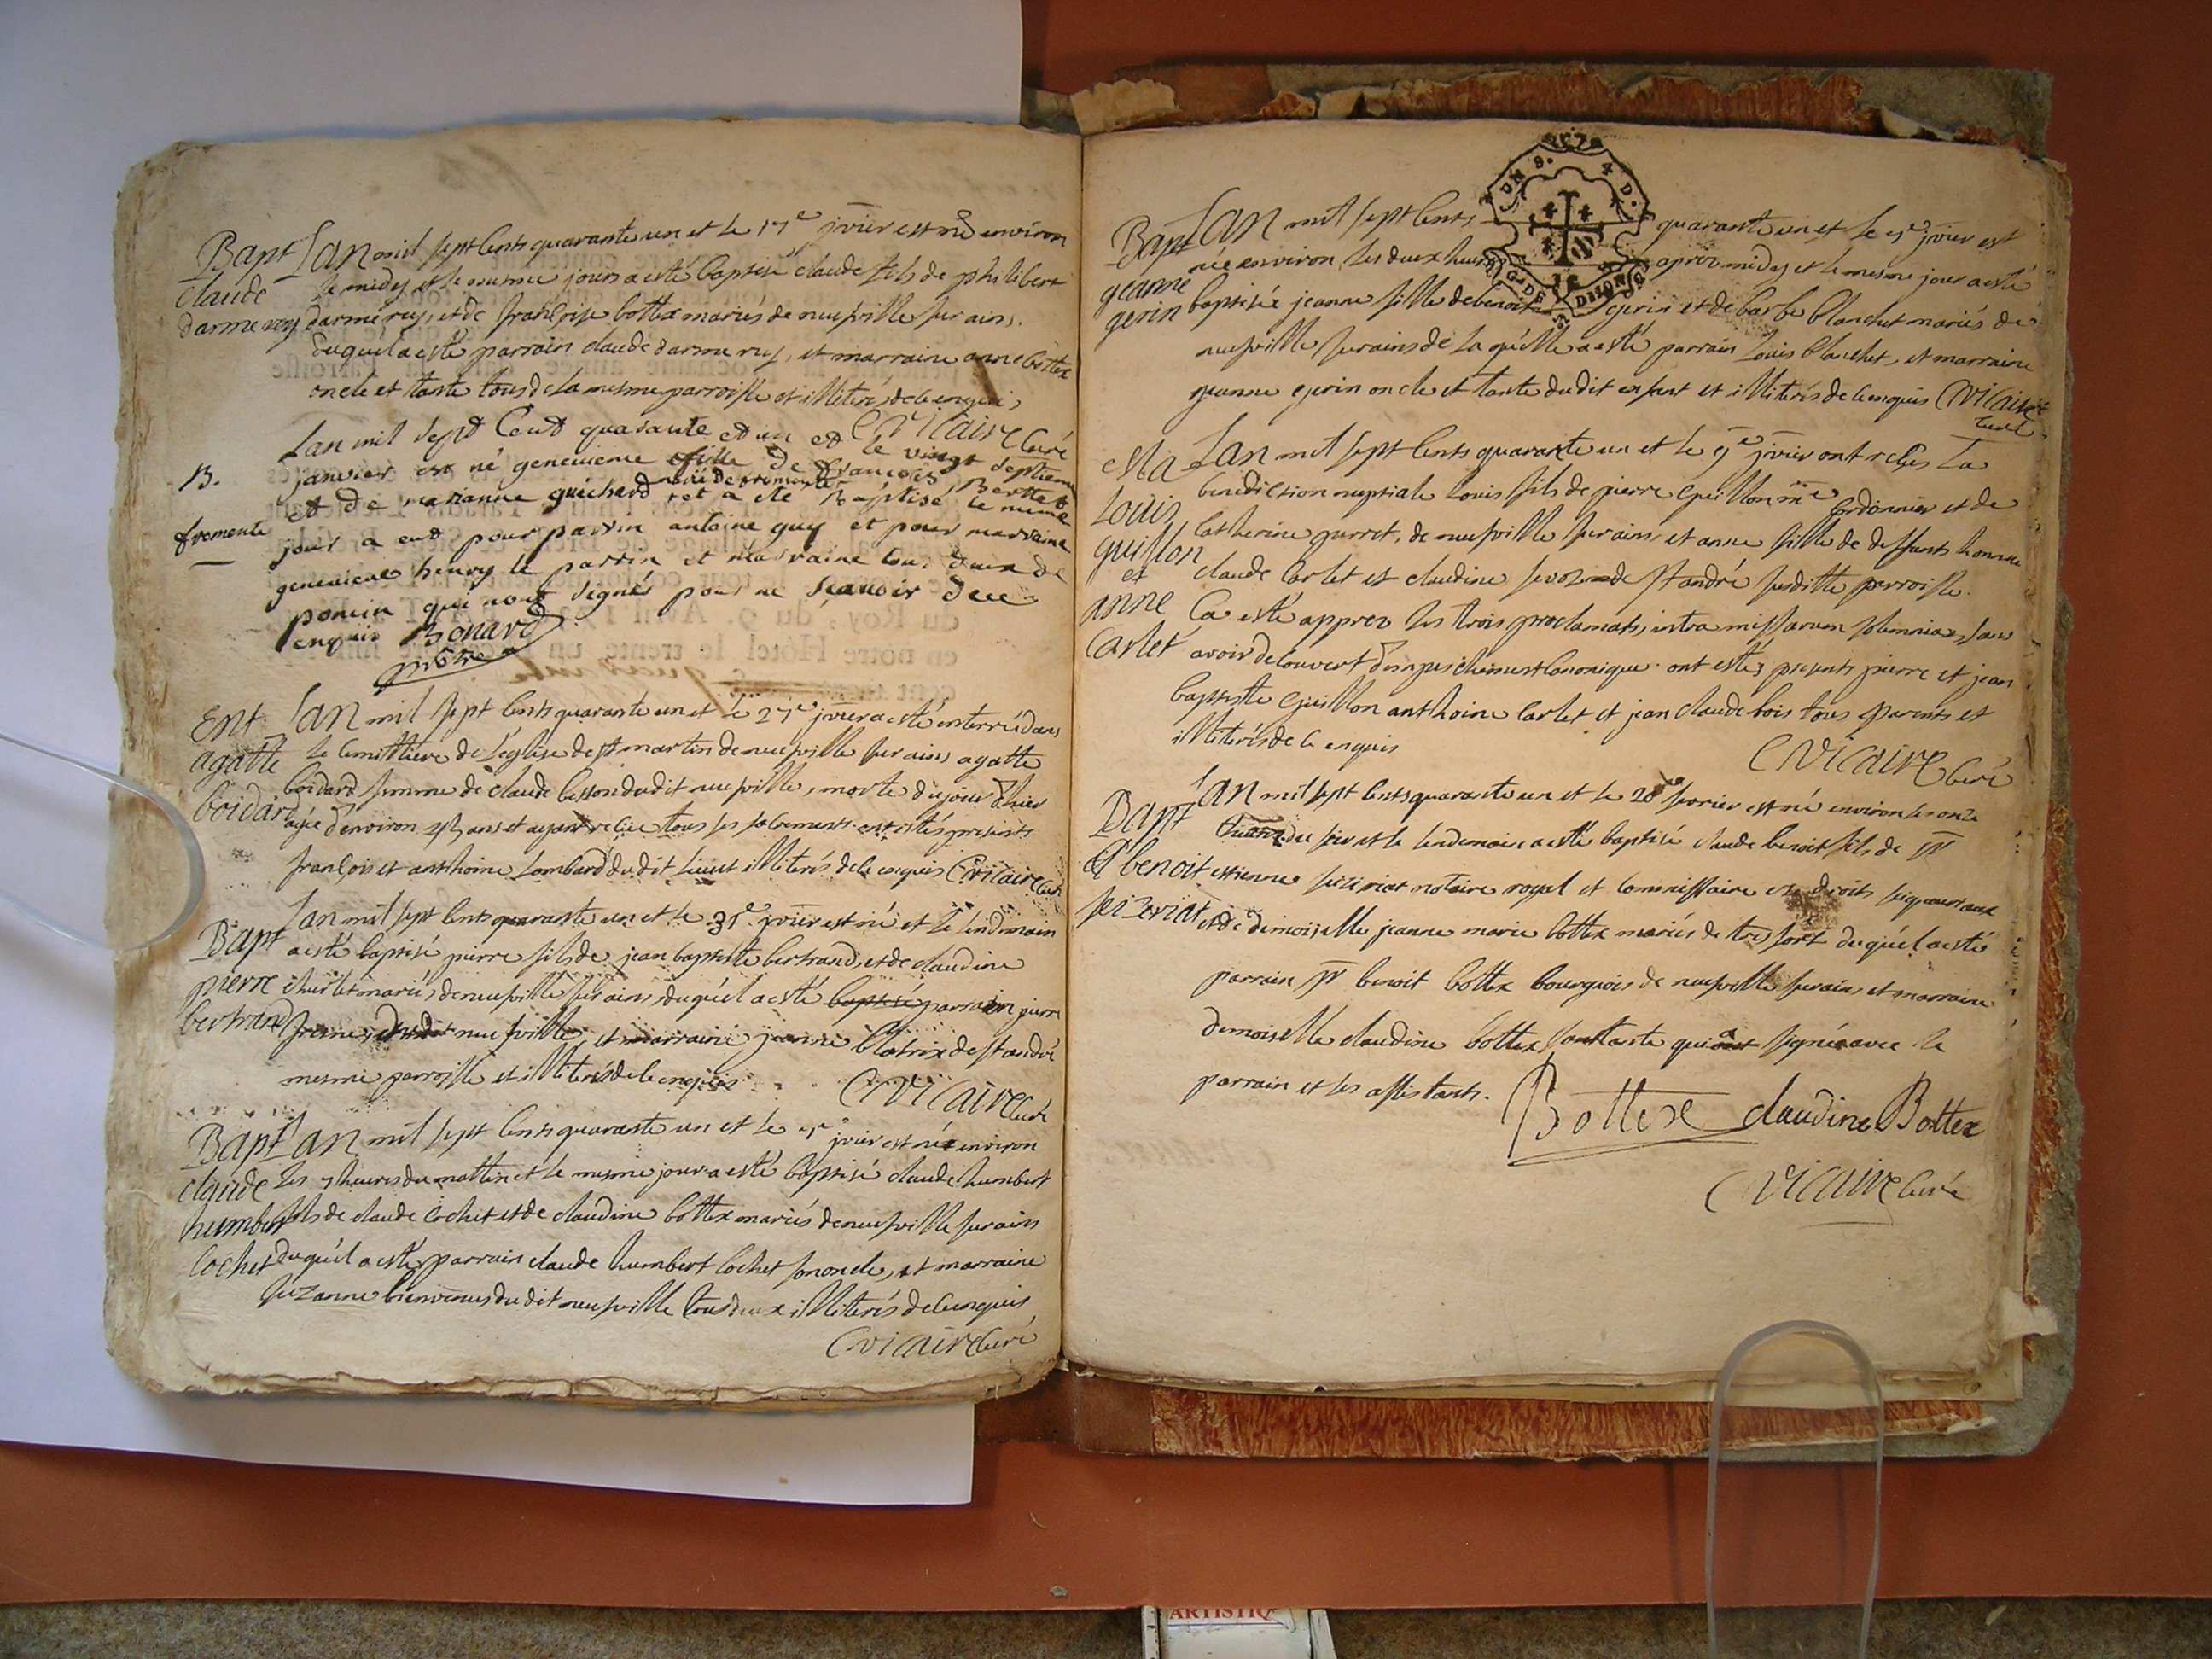 Bapt Lan mil sept cents quarante un et le 17e jvier est né environ
claude le midy et le mesme jour a esté baptisé claude fils de philibert
darmeruy darmeruy, et de françoise bottex mariés de neufville sur ains.
duquel a esté parrain claude darmeruy, et marraine anne bottex
oncle et tante tous de la mesme parroisse et illiterés de ce enquis,
C Vicaire Curé
Lan mil sept Cent quarante et un et le vingt septieme
B. janvier est né genevieve fille de francois Berthet
et de marianne guichard et a été Baptisé le meme
fromente jour a eut pour parrin antoine guy et pour marraine
genevieve henry le parrin et marraine tous deux de
poncin qui n'ont signés pour ne scavoir de ce
enquis Bonard
prêtre
Ent Lan mil sept cents quarante un et le 27e jvier a esté enterrée dans
agatte le cimittiere de l'église de st martin de neufville sur ains agatte
boidard boidard femme de claude besson dudit neufville, morte du jour d'hier
agée d'environ ans et ayant reçue tous ses sacrements ont estés presents
françois et anthoine Lombard dudit lieu et illiterés de ce enquis C Vicaire Curé
Lan mil sept cents quarante un et le 31e jvier est né et le lendemain
Bapt a esté baptisé pierre fils de jean baptiste bertrand, et de claudine
pierre mariés de neufville sur ains, duquel a esté baptisé parrain pierre
bertrand dudit neufville et marraine jeanne blatrix de st andré
mesme parroisse et illiterés de ce enquis C Vicaire Curé
Bapt Lan mil sept cents quarante un et le jvier est né environ
claude les 7 heures du mattin et le mesme jour a esté baptisé claude humbert
humbert fils de claude cochet et de claudine bottex mariés de neufville sur ains
cochet duquel a esté parrain claude humbert cochet son oncle, et marraine
suzanne bienvenus dudit neufville tous deux illiterés de ce enquis
C Vicaire Curé
Bapt Lan mil sept cents quarante un et le jvier est
née environ les deux heures après midy et le mesme jour a esté
jeanne baptisée jeanne fille de benoit gerin et de barbe blanchet mariés de
gerin
neufville sur ains de laquelle a esté parrain Louis blanchet, et marraine
jeanne gerin oncle et tante dudit enfant et illiterés de ce enquis C Vicaire
Curé
Lan mil sept cents quarante un et le jvier ont reçus La
benediction nuptiale Louis fils de pierre Guillon me Cordonnier et de
Louis Catherine perret, de neufville sur ains, et anne fille de deffunts honneste
guillon claude Carlet et claudine de st andré susditte parroisse.
et
anne Ca esté apprez les trois proclamats, intra missarum solemnia, sans
Carlet avoir decouvert d'empeschement canonique. ont estés presents pierre et jean
baptiste Guillon anthoine Carlet et jean claude bois tous parents et
illiterés de ce enquis
C Vicaire Curé
Lan mil sept cents quarante un et le 20e fevrier est né environ les onze
Bapt heures du soir et le lendemain a esté baptisé claude benoit fils de sr
Cl benoit estienne notaire royal et commissaire en droits seigneuriaux
et de demoiselle jeanne marie bottex mariés de duquel a esté
parrain sr benoit bottex bourgeois de neufville sur ains et marraine
demoiselle claudine bottex sa tante qui a signé avec le
parrain et les assistants.
Bottex claudine Bottex
C Vicaire Curé
ARTISTIQ